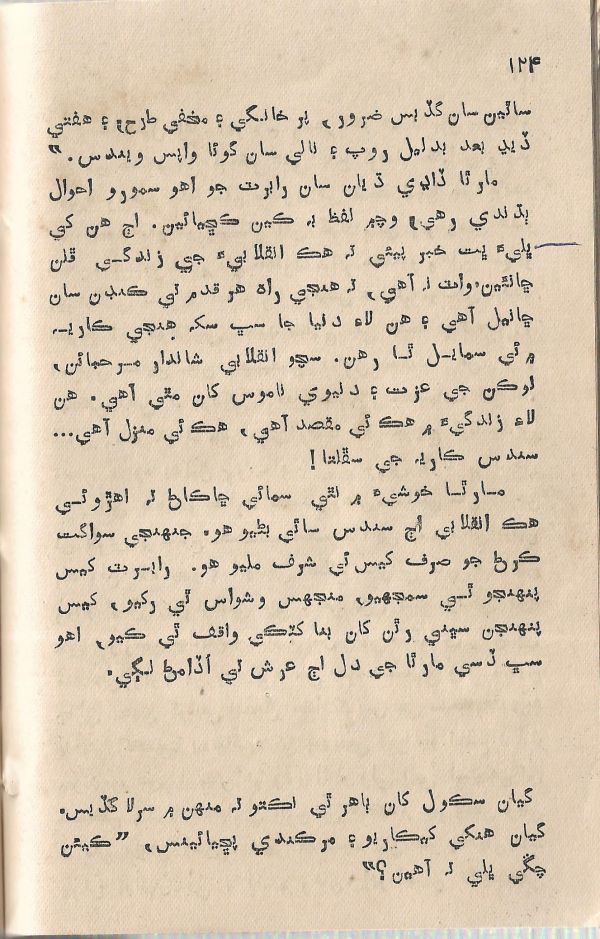 ۱۲۴
سائين سان گڏبس ضرور، پر خانگي ۽ مخفي طرح، ۽ هفتي
ڏيڍ بعد بدليل روپ ۽ نالي سان گوئا واپس ويندس."
مارٿا ڏاڍي ڌيان سان رابرٽ جو اهو سمورو احوال
ٻڌندي رهي، وچ ۾ لفظ به ڪين ڪڇيائين. اڄ هن کي
ڀليءَ ڀت خبر پيئي ته هڪ انقلابيءَ جي زندگي ڦلن
ڇانئين وات نه آهي، ته هنجي راه هر قدم تي ڪنڊن سان
ڇانيل آهي ۽ هن لاءِ دنيا جا سڀ سک هنجي ڪاريه
۾ ئي سمايل ٿا رهن. سچو انقلابي شاندار مرحبائن،
لوڪن جي عزت ۽ دنيوي ناموس کان مٿي آهي. هن
لاءِ زندگيءَ ۾ هڪ ئي مقصد آهي، هڪ ئي منزل آهي...
سندس ڪاريه جي سڦلتا!
مارٿا خوشيءَ ۾ نٿي سمائي ڇاڪاڻ ته اهڙو ئي
هڪ انقلابي اڄ سندس ساٿي بڻيو هو. جنهنجي سواگت
ڪرڻ جو صرف کيس ئي شرف مليو هو. رابرٽ کيس
پنهنجو ٿي سمجهيو، منجهس وشواس ٿي رکيو، کيس
پنهنجن سڀني رٿن کان بنا کٽڪي واقف ٿي ڪيو، اهو
سڀ ڏسي مارٿا جي دل اڄ عرش تي اُڏامڻ لڳي.
گيان سڪول کان ٻاهر ئي اڪتو ته منهن ۾ سرلا گڏيس.
گيان هنکي کيڪاريو ۽ مرڪندي پڇيائينس، "ڪيئن
چڱي ڀلي ته آهين؟"